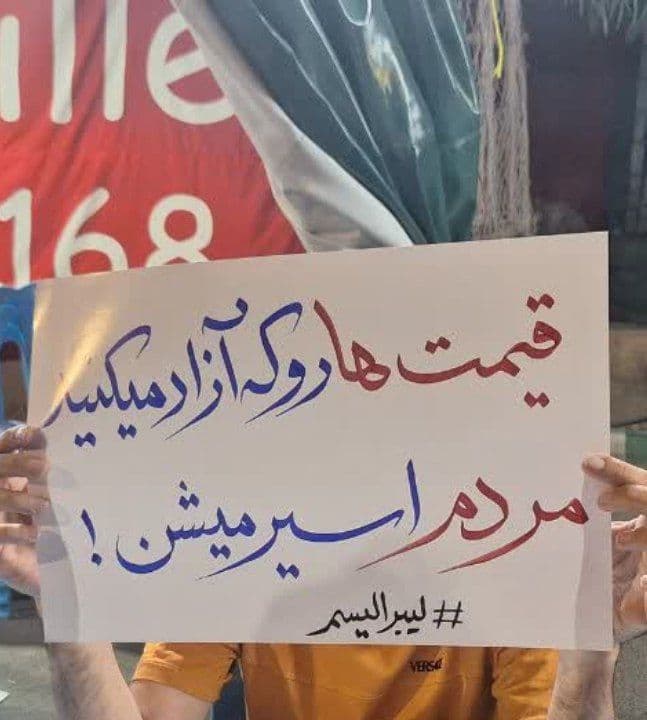 ille
168
قیمت ها رو که آزاد میکنید
مردم اسیر میشن !
# لیبرالیسم
VERSA